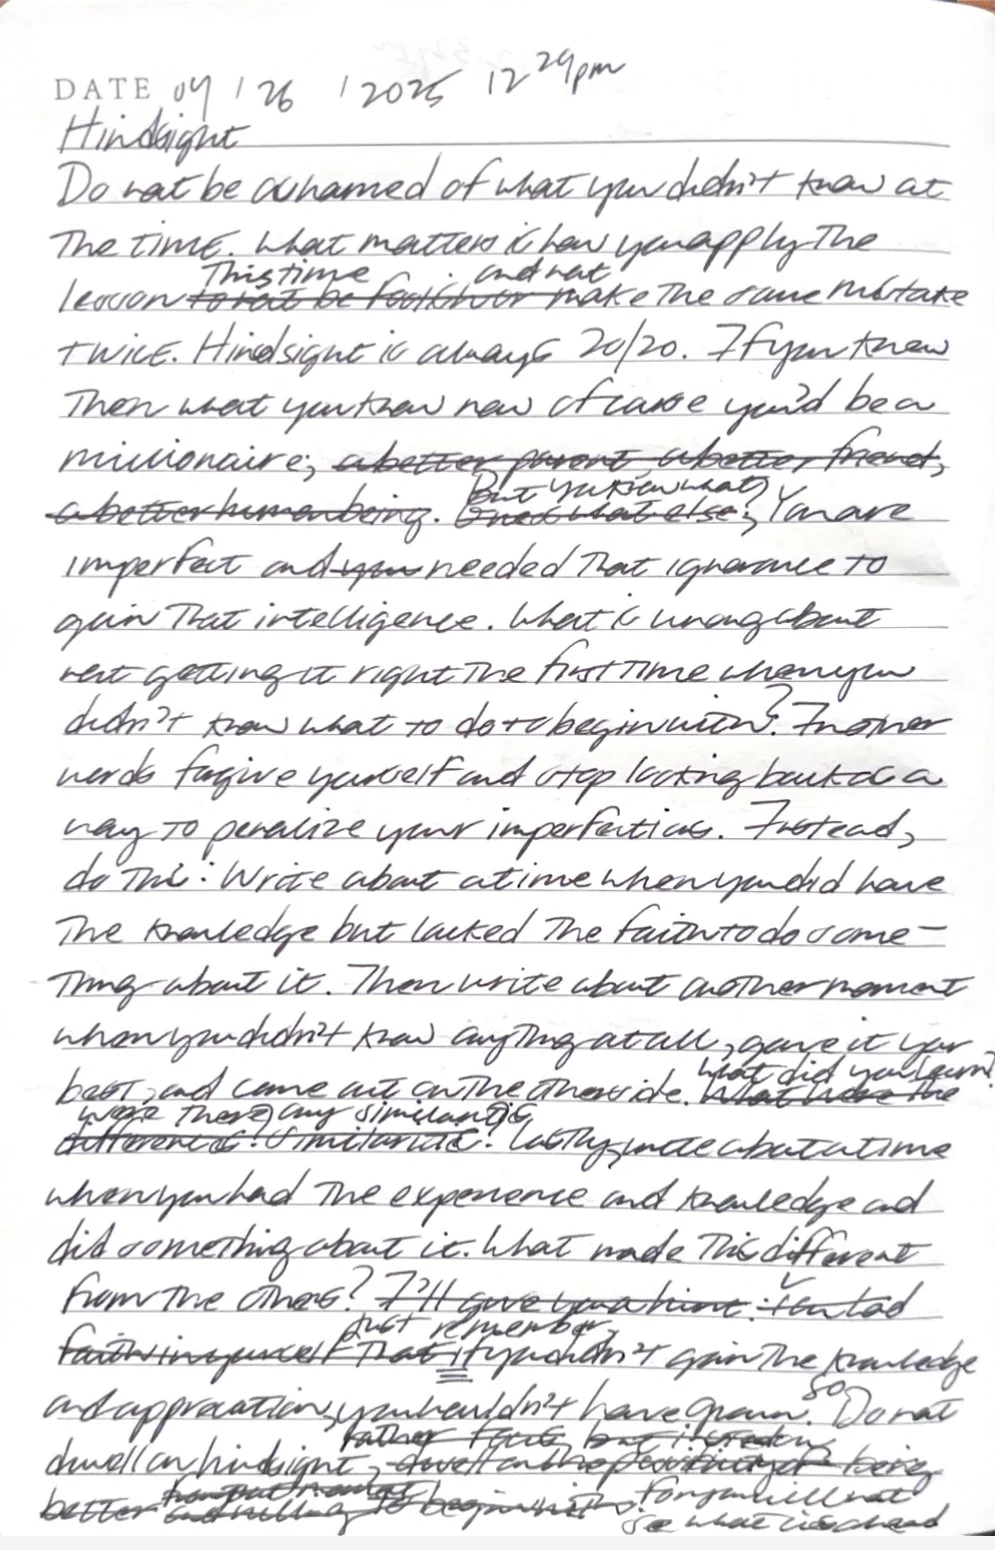 DATE 09 / 26 / 2025 12 29pm
Hindsight
Do not be ashamed of what you didn't know at
the time. What matters is how you apply the
This time and not
lesson to not be foolish or make the same mistake
twice. Hindsight is always 20/20. If you knew
then what you know now of course you'd be a
millionaire; a better parent, a better friend,
a better human being. But you know what?
Guess what else?; You are
imperfect and you needed that ignorance to
gain that intelligence. What is wrong about
not getting it right the first time when you
didn't know what to do to begin with? In other
words forgive yourself and stop looking back as a
way to penalize your imperfections. Instead,
do this: Write about a time when you did have
the knowledge but lacked the faith to do some-
thing about it. Then write about another moment
when you didn't know anything at all, gave it your
best, and came out on the other side. What did you learn?
What were the
Were there any similarities,
differences? Similarities? Lastly, write about a time
when you had the experience and knowledge and
did something about it. What made this different
from the others? I'll give you a hint: You had
just remember,
faith in yourself that if you didn't gain the knowledge
and appreciation, you wouldn't have grown. So Do not
rather focus, but instead
dwell on hindsight, dwell on the possibility of being
better and willing to begin with. for you will not
see what lies ahead